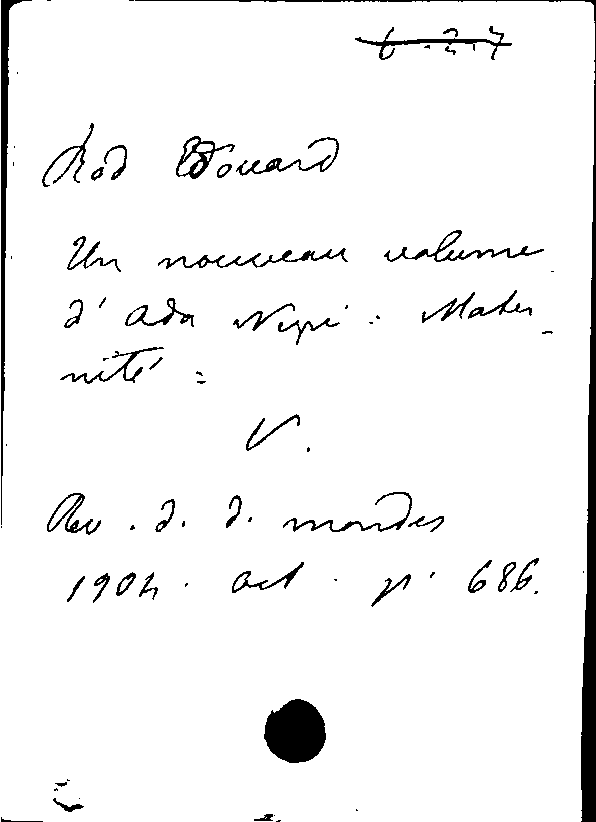 6.2.7
Rod Edouard
Un nouveau volume
d'Ada Negri : Mater-
nité =
V.
Rev. d. d. mondes
1904. oct. p. 686.